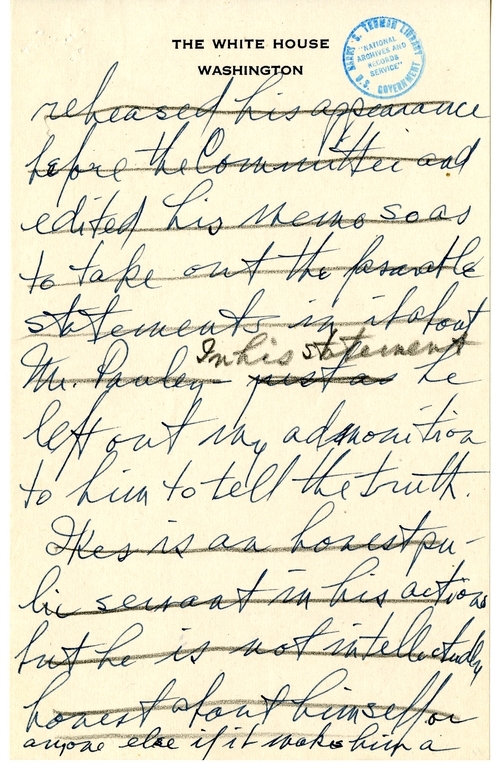 THE WHITE HOUSE
WASHINGTON
HARRY S. TRUMAN LIBRARY
"NATIONAL
ARCHIVES AND
RECORDS
SERVICE"
U.S. GOVERNMENT
rehearsed his appearance
before the Committee and
edited his memo so as
to take out the favorable
statements in it about
In his statement
Mr. Pauley - just as he
left out my admonition
to him to tell the truth.
Ikes is an honest pu-
lic servant in his actions
but he is not intellectually
honest about himself or
anyone else if it makes him a